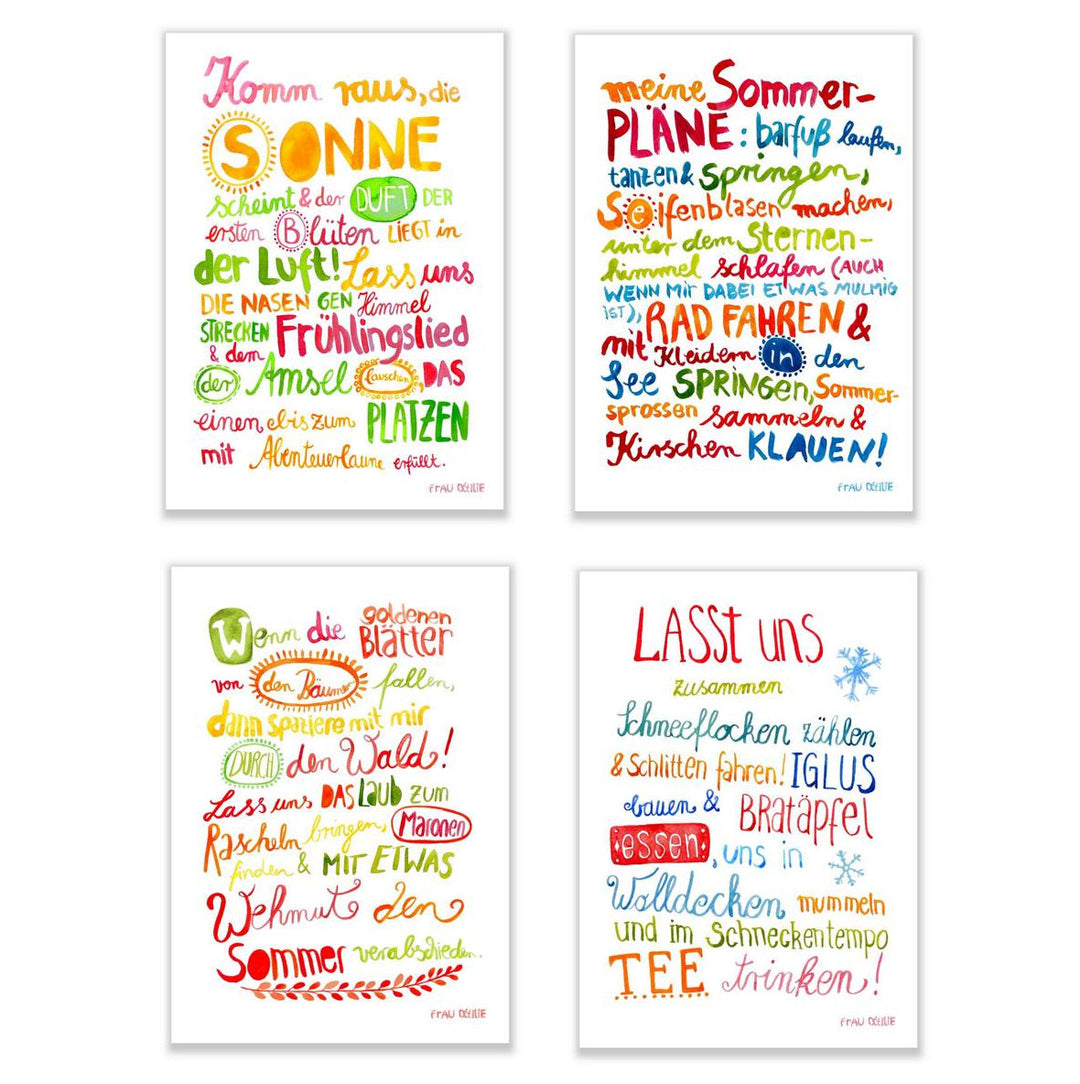 Komm raus, die
SONNE
scheint & der DUFT DER
ersten Blüten LIEGT in
der Luft! Lass uns
DIE NASEN GEN Himmel
STRECKEN Frühlingslied
& dem
der Amsel lauschen, DAS
einen ebis zum PLATZEN
mit Abenteuerlaune erfüllt.
FRAU OTTILIE
meine Sommer-
PLÄNE: barfuß laufen,
tanzen & springen,
Seifenblasen machen,
unter dem Sternen-
himmel schlafen (AUCH
WENN MIR DABEI ETWAS MULMIG
IST), RAD FAHREN &
mit Kleidern in den
See SPRINGEN, Sommer-
sprossen sammeln &
Kirschen KLAUEN!
FRAU OTTILIE
Wenn die goldenen
Blätter
von den Bäumen fallen,
dann spaziere mit mir
DURCH den Wald!
Lass uns DAS Laub zum
Rascheln bringen, Maronen
finden & MIT ETWAS
Wehmut den
Sommer verabschieden.
FRAU OTTILIE
LASST uns
zusammen
Schneeflocken zählen
& Schlitten fahren! IGLUS
bauen & BRATÄPFEL
essen, uns in
Wolldecken mummeln
und im Schneckentempo
TEE trinken!
FRAU OTTILIE